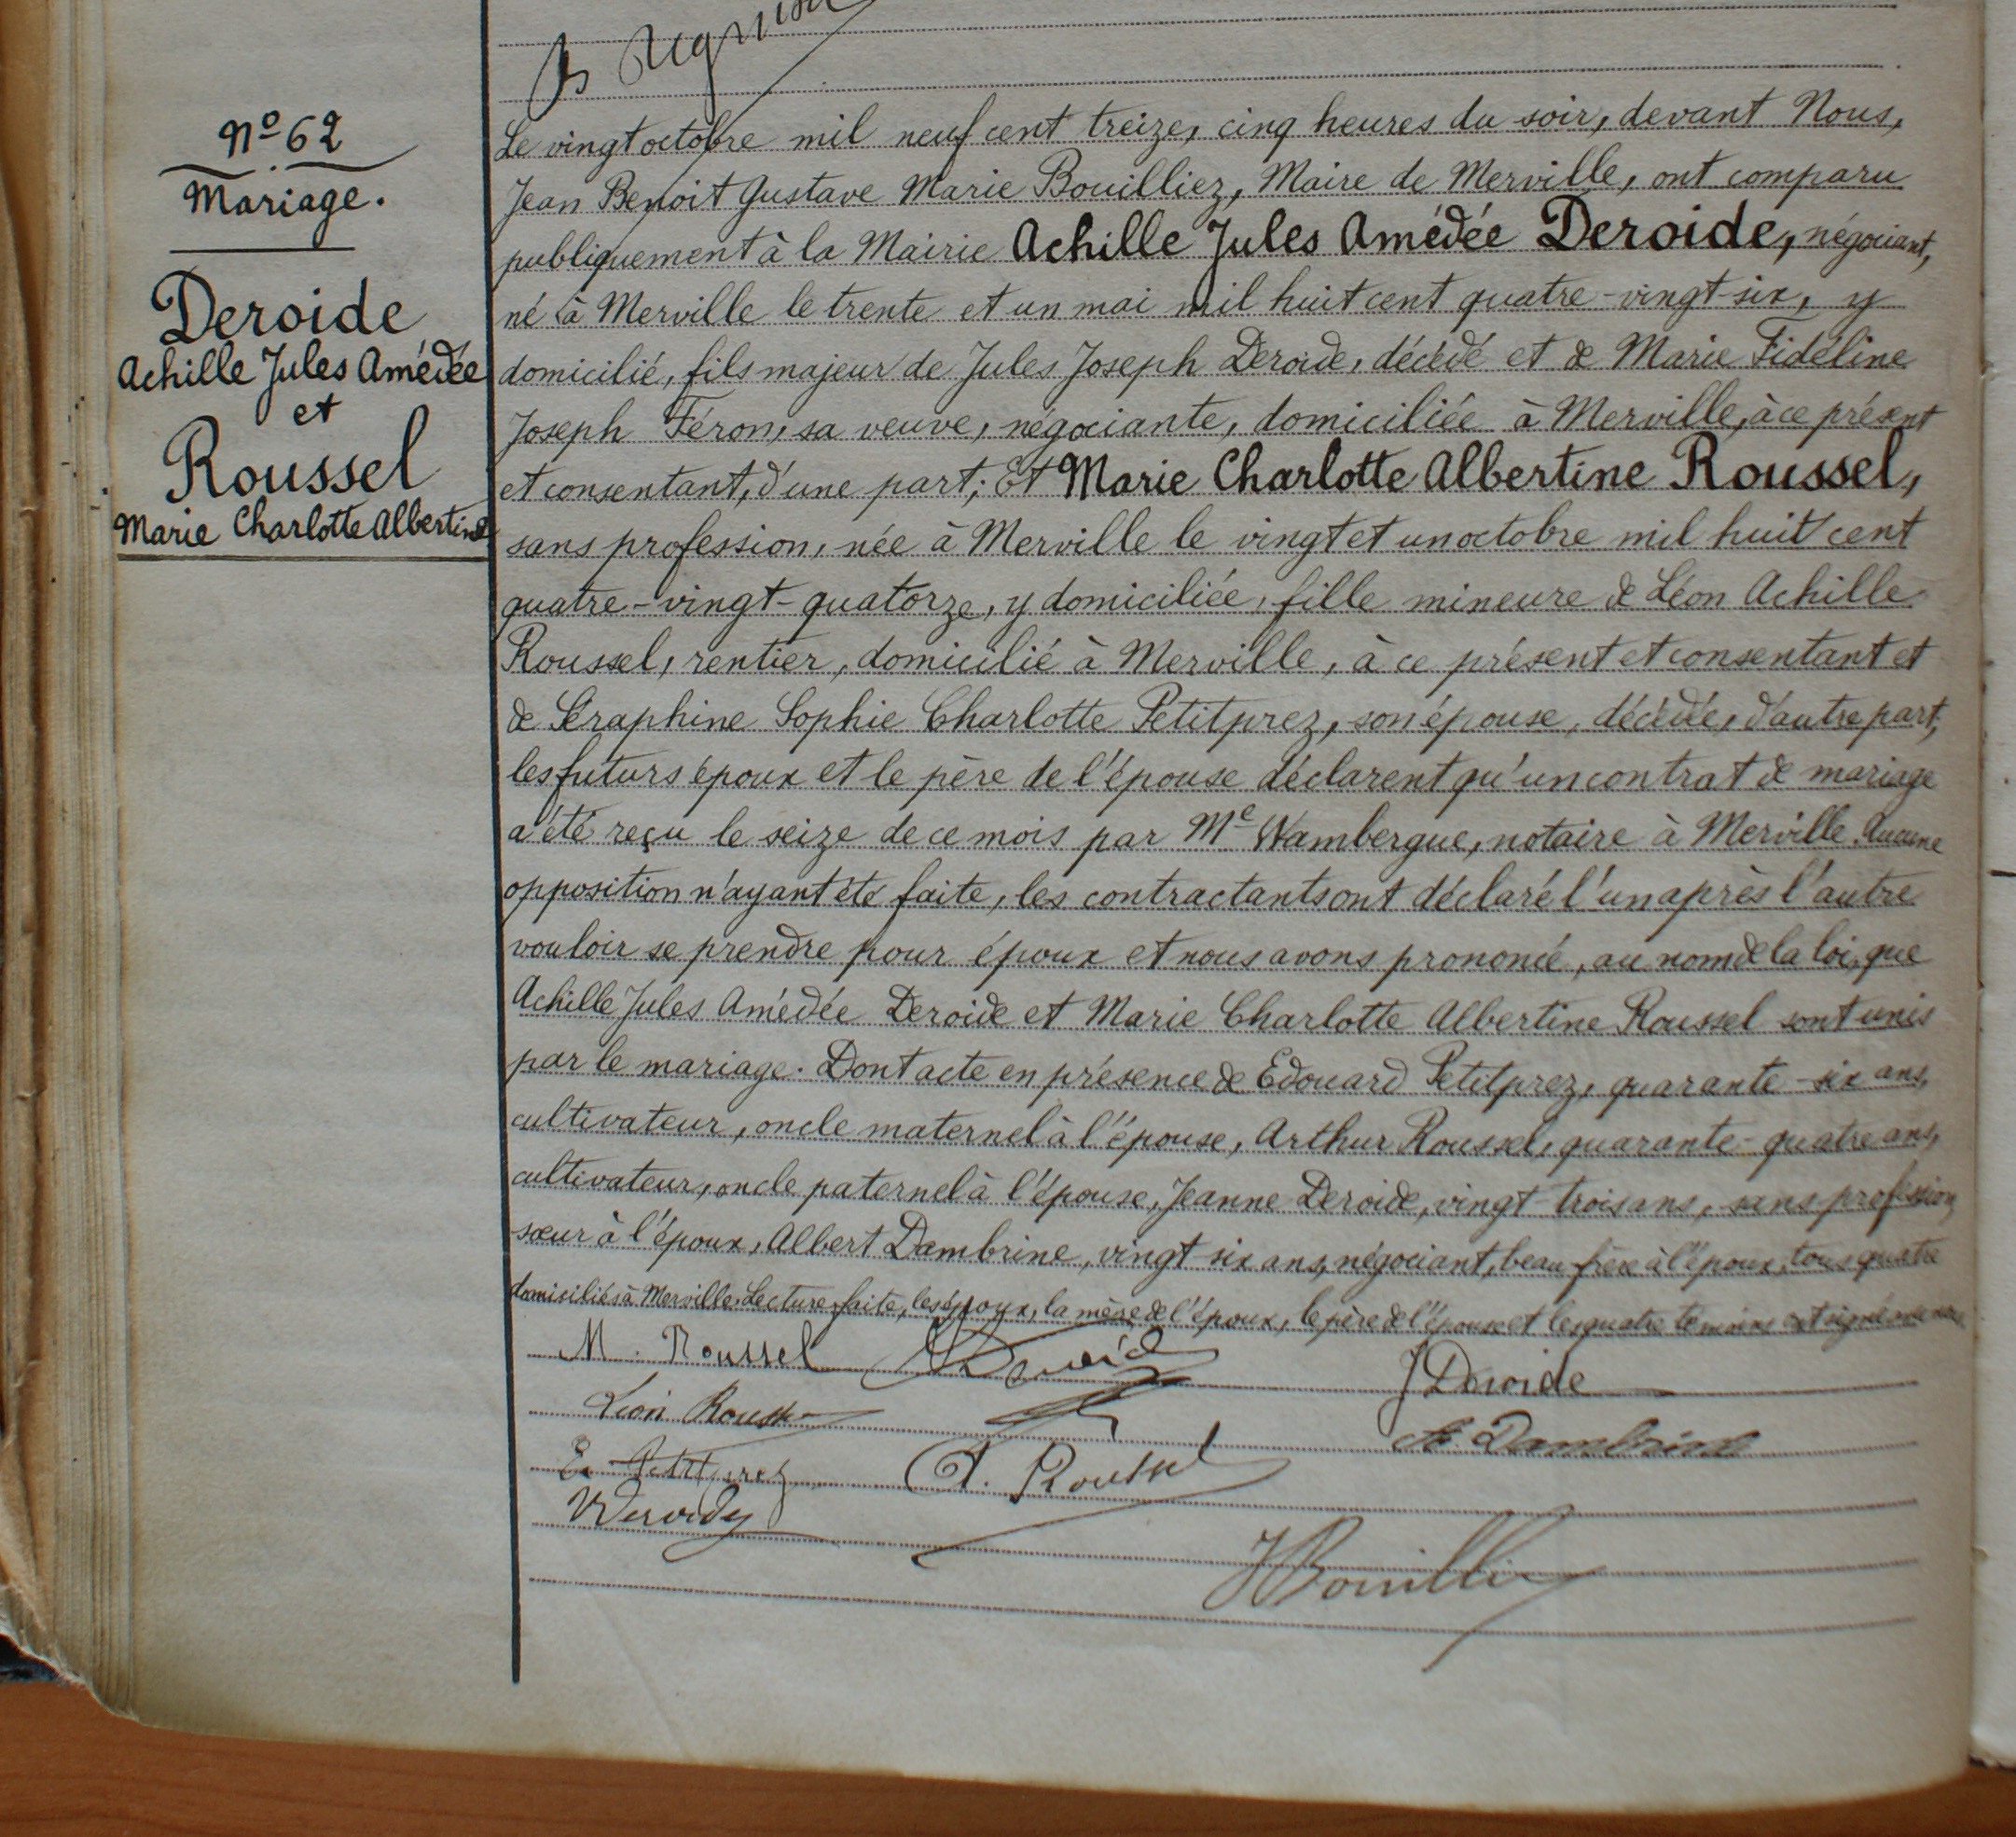 Nº 62
Mariage.
Deroide
Achille Jules Amédée
et
Roussel
Marie Charlotte Albertine
Le vingt octobre mil neuf cent treize, cinq heures du soir, devant Nous,
Jean Benoit Gustave Marie Bouilliez, Maire de Merville, ont comparu
publiquement à la Mairie Achille Jules Amédée Deroide, négociant,
né à Merville le trente et un mai mil huit cent quatre-vingt-six, y
domicilié, fils majeur de Jules Joseph Deroide, décédé et de Marie Fidéline
Joseph Féron, sa veuve, négociante, domiciliée à Merville, à ce présent
et consentant, d'une part; Et Marie Charlotte Albertine Roussel,
sans profession, née à Merville le vingt et un octobre mil huit cent
quatre-vingt-quatorze, y domiciliée, fille mineure de Léon Achille
Roussel, rentier, domicilié à Merville, à ce présent et consentant et
de Séraphine Sophie Charlotte Petitprez, son épouse, décédée, d'autre part,
les futurs époux et le père de l'épouse déclarent qu'un contrat de mariage
a été reçu le seize de ce mois par Me Wambergue, notaire à Merville. Aucune
opposition n'ayant été faite, les contractants ont déclaré l'un après l'autre
vouloir se prendre pour époux et nous avons prononcé, au nom de la loi, que
Achille Jules Amédée Deroide et Marie Charlotte Albertine Roussel sont unis
par le mariage. Dont acte en présence de Edouard Petitprez, quarante-six ans,
cultivateur, oncle maternel à l'épouse, Arthur Roussel, quarante-quatre ans,
cultivateur, oncle paternel à l'épouse, Jeanne Deroide, vingt-trois ans, sans profession,
sœur à l'époux, Albert Dambrine, vingt six ans, négociant, beau-frère à l'époux, tous quatre
domiciliés à Merville. Lecture faite, les époux, la mère de l'époux, le père de l'épouse et les quatre témoins ont signé avec nous
M. Roussel
J Deroide
Léon Roussel
A. Dambrine
E. Petitprez
A. Roussel
JBouilliez